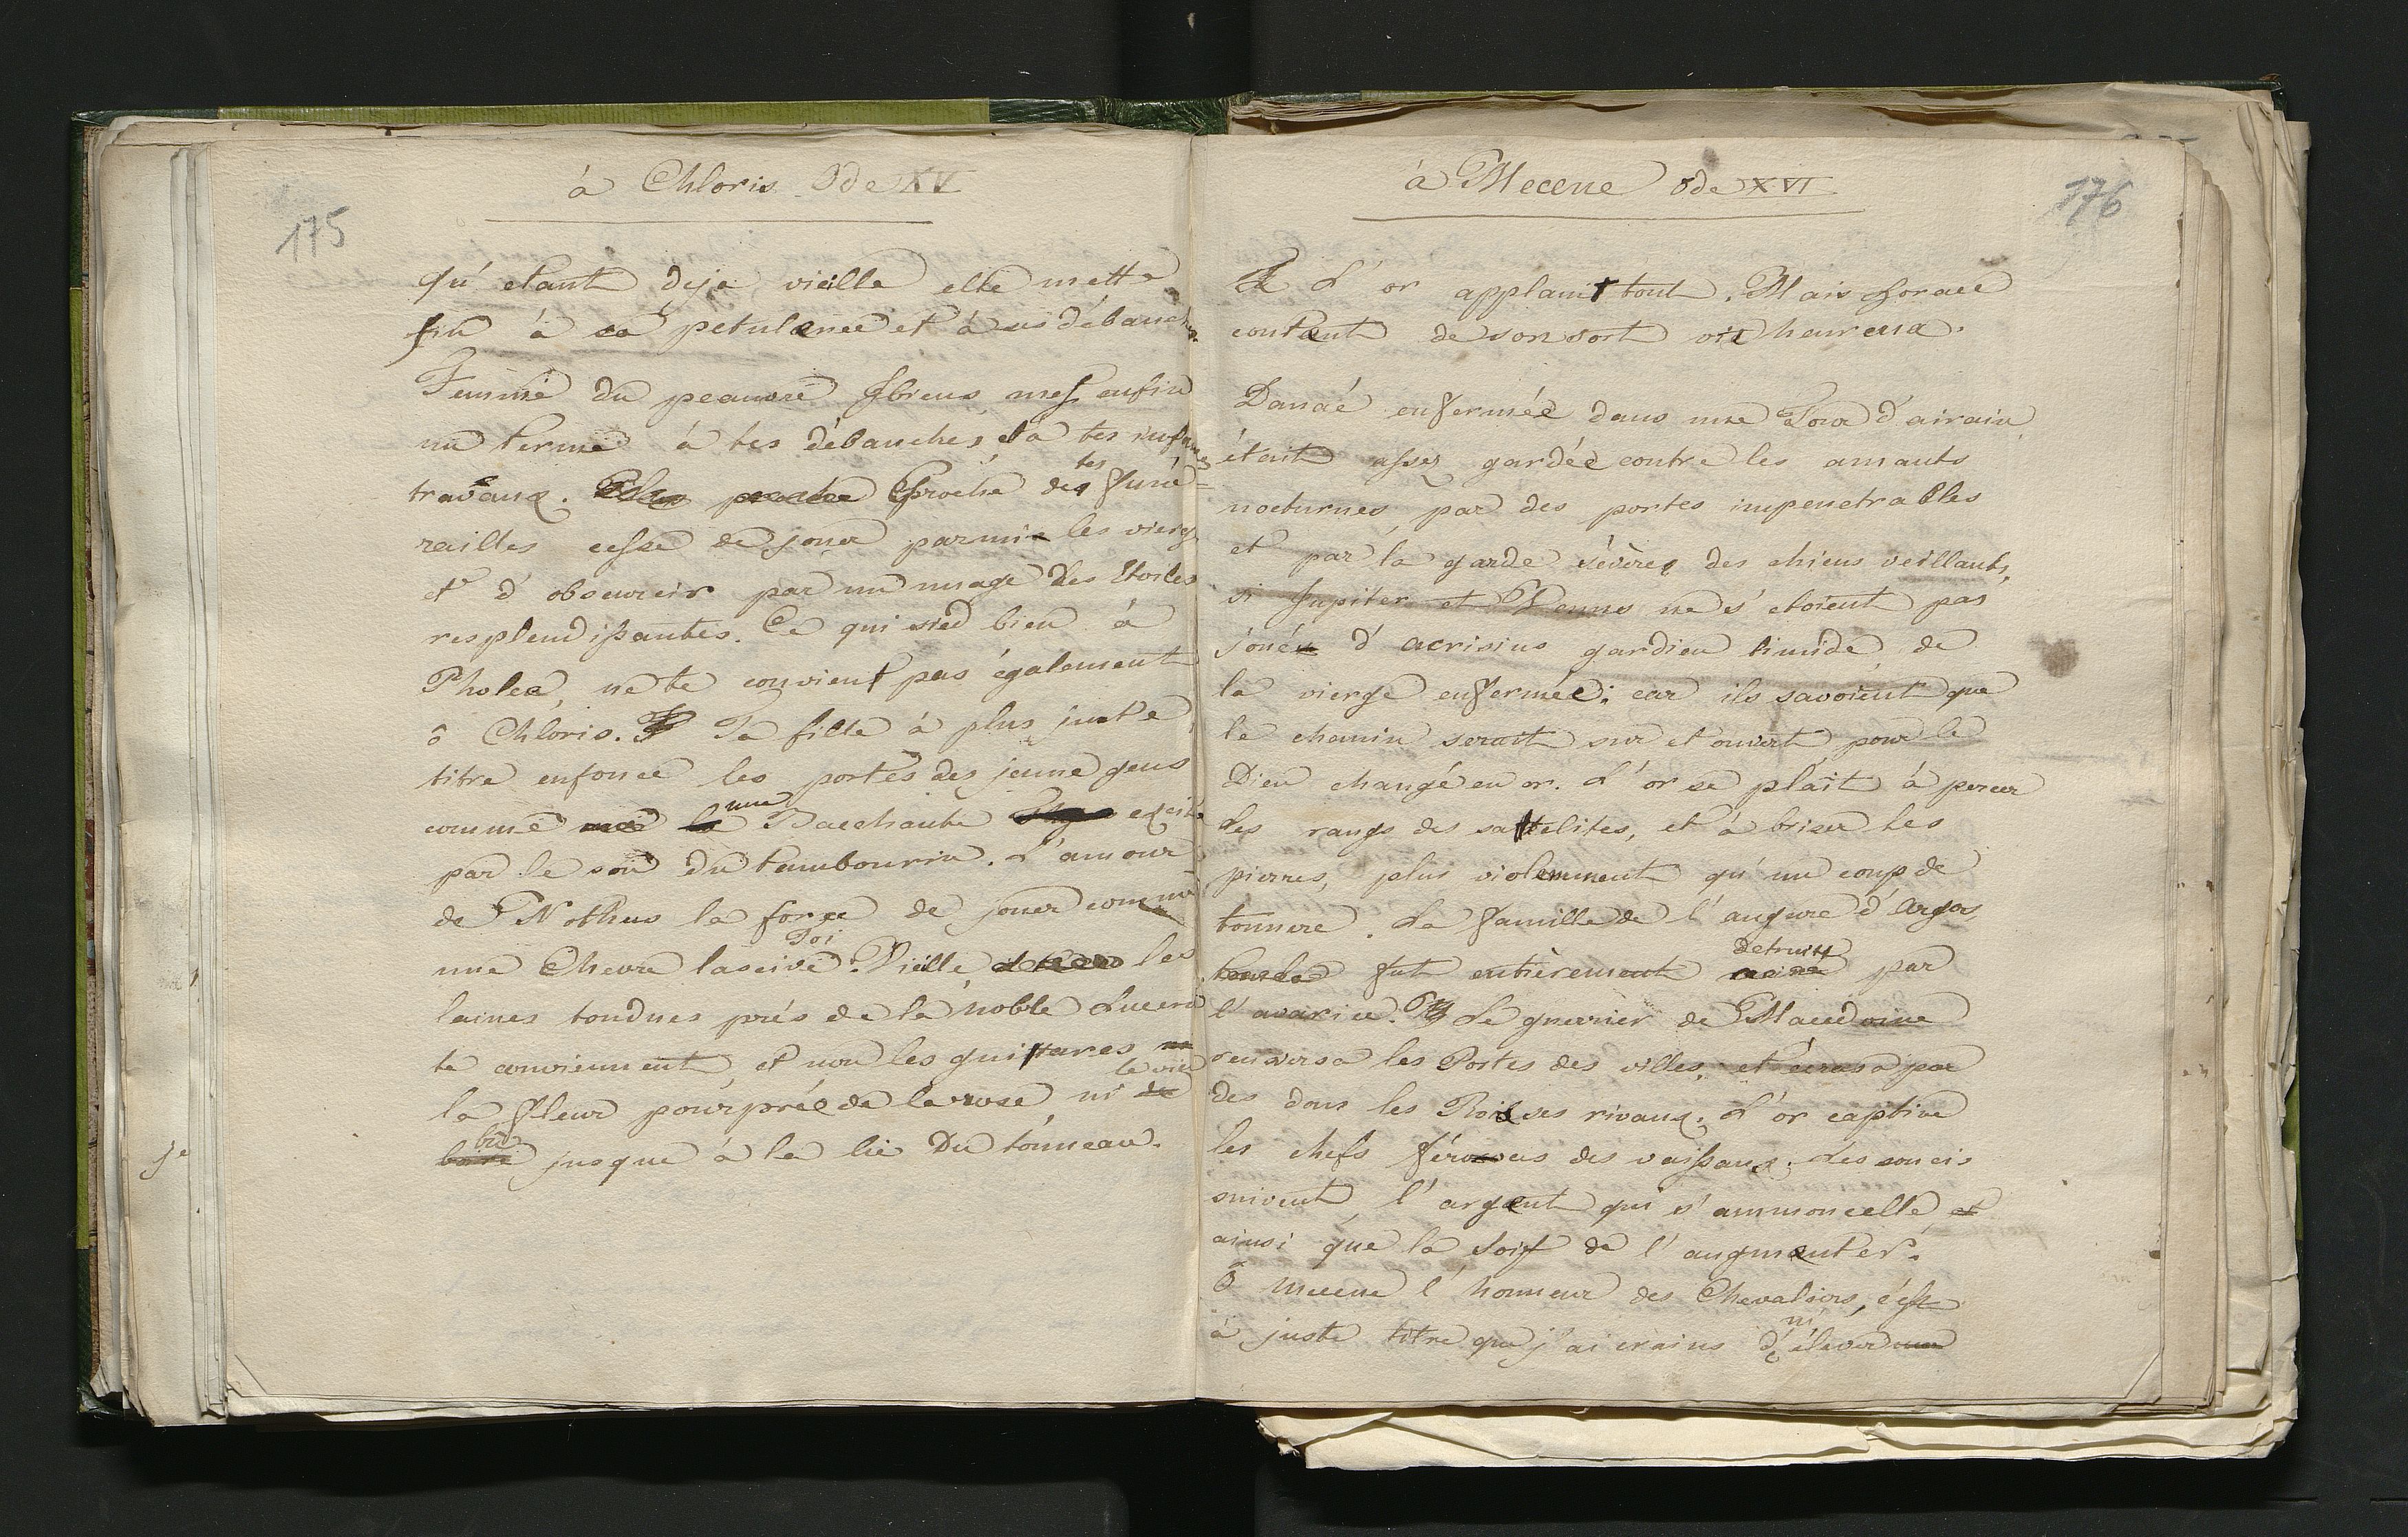 à Chloris Ode XV
175
qu'etant deja vieille elle mette
fin à sa petulence et à ses débauches.
Femme du peauvre Ibicus, mets enfin
un terme à tes débauches, et à tes infames
travaux. Proche des tes funé=
railles cesse de jouer parmi les vierges
et d'obscurcir par un nuage des Etoiles
resplendissantes. Ce qui sied bien à
Pholeé, ne te convient pas également
ô Chloris. Ta fille à plus juste
titre enfonce les portes des jeune gens
comme une Bacchante excitée
par le son du tambourin. L'amour
de Nothus la force de jouer comme
une Chevre lascive. Toi Vieille les
laines tondues prés de la noble Lucerie
te conviennent, et non les guittares
la fleur pourpréé de la rose, ni le vin
bu jusque à la lie du tonneau.
à Mecene Ode XVI
176
L'or applanit tout. Mais horace
content de son sort vit heureux.
Danaé enfermée dans une Tour d'airain,
était assez gardée contre les amants
nocturnes, par des portes impenetrables
et par la garde sévère des chiens veillants,
si Jupiter et Venus ne s'etoient pas
joué d'acrisius gardien timide, de
la vierge enfermée: car ils savoient que
le chemin serait sur et ouvert pour le
Dieu changé en or. L'or se plait à percer
les rangs des sattelites, et à briser les
pierres, plus violemment qu'un coup de
tonnere. La famille de l'augure d'Argos,
fut entièrement detruitt par
l'avarice. Le guerrier de Macedoine
renversa les Portes des villes, et écrasa par
des dons les Rois ses rivaux. L'or captive
les chefs féroces des vaissaux. Les soucis
suivent l'argent qui s'ammoncelle
ainsi que la soif de l'augmenter.
Ô mecene l'honneur des Chevaliers, c'est
à juste titre que j'ai crains d'élever